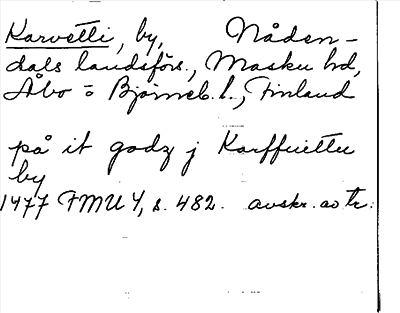 Karvetti, by, Nåden-
dals landsförs., Masku hd,
Åbo o Björneb. l., Finland
på it godz j Karffuettu
by
1477 FMU 4, s. 482. avskr. ao tr.